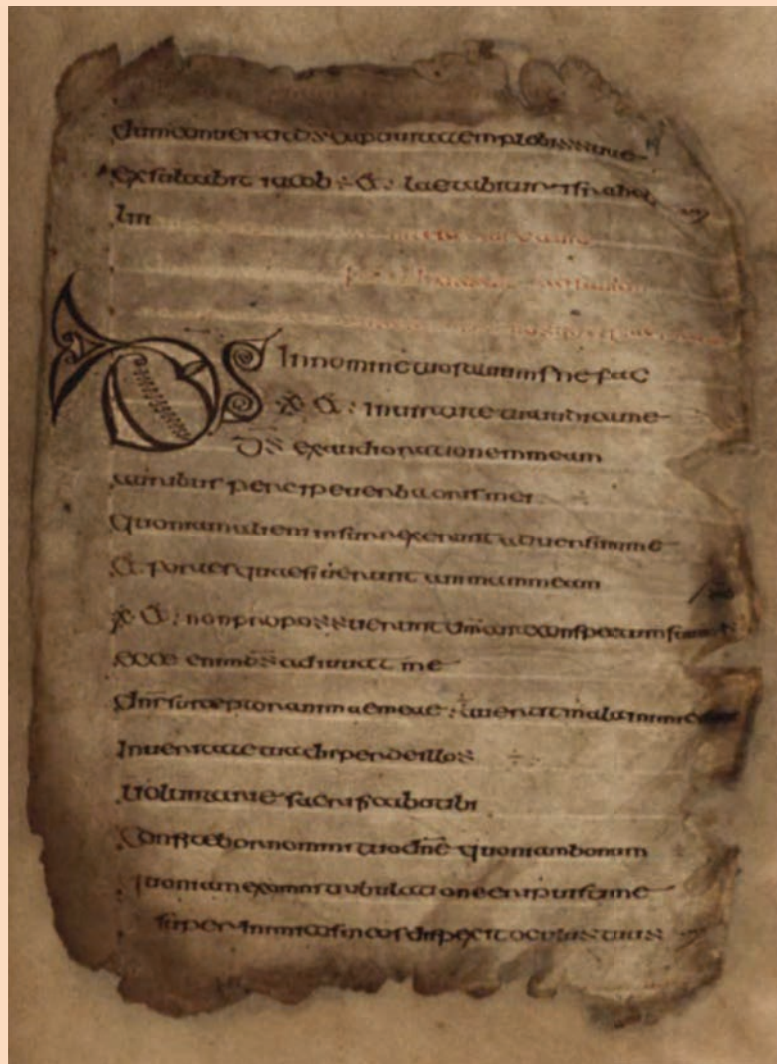 captiuitatem plebis suae
exsultabit iacob ÷ & : laetabitur israhel
DS In nomine tuo saluum me fac
※ & : in uirtute tua iudica me
ds exaudi orationem meam
auribus percipe uerba oris mei
Quoniam alieni insurrexerunt aduersum me
& fortes quaesierunt animam meam
※ & : non proposuerunt dm ante conspectum suum
ecce enim ds adiuuat me
dns susceptor animae meae : mala
In ueritate tua disperde illos
Uoluntarie sacrificabo tibi
Confitebor nomini tuo dne quoniam bonum
quoniam ex omni tribulatione eripuisti me
super inimicos oculus tuus